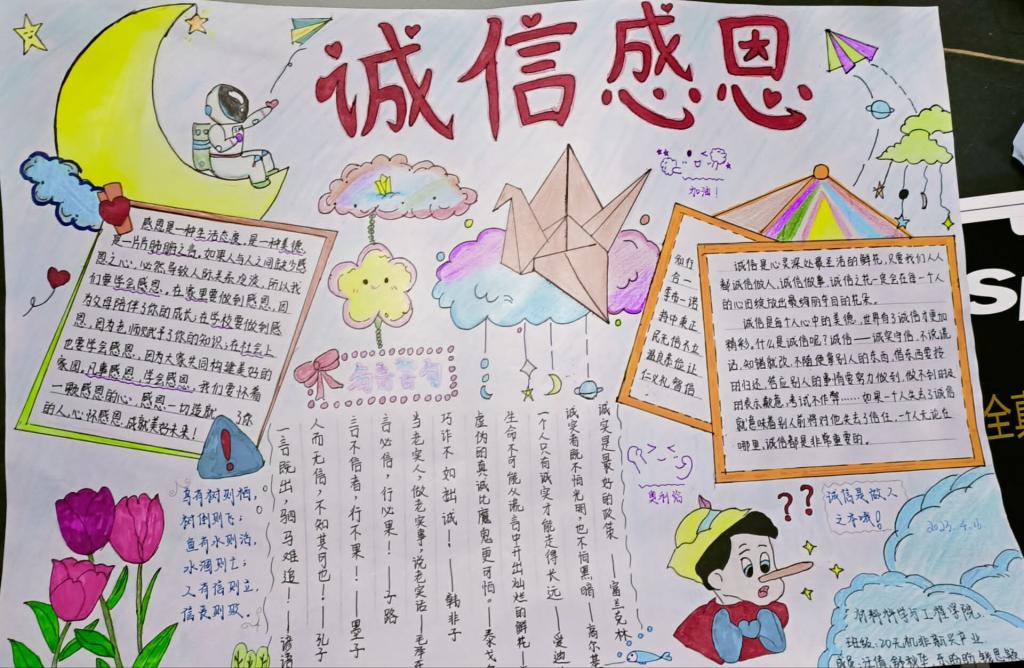 诚信感恩
加油！
感恩是一种生活态度,是一种美德,
是一片肺腑之言。如果人与人之间缺少感
恩之心,必然导致人际关系冷淡,所以我
们要学会感恩,在家里要做到感恩,因
为父母陪伴了你的成长;在学校要做到感
恩,因为老师赋予了你的知识;在社会上
也要学会感恩,因为大家共同构建美好的
家园。凡事感恩,学会感恩,我们要怀着
一颗感恩的心,感恩一切造就了你
的人。心怀感恩,成就美好未来!
知行
合一
季布一诺
持中秉正
民无信不立
温良恭俭让
仁义礼智信
诚信是心灵深处最圣洁的鲜花,只要我们人人
都诚信做人,诚信做事,诚信之花一定会在每一个人
的心田绽放出最绚丽夺目的花朵。
诚信是每个人心中的美德,世界有了诚信才更加
精彩。什么是诚信呢?诚信——诚实守信,不说谎
话,知错就改,不随便拿别人的东西,借东西要按
时归还,答应别人的事情要努力做到,做不到时
表示歉意,考试不作弊……如果一个人失去了诚信
就意味着别人将对他失去了信任,一个人无论在
哪里,诚信都是非常重要的。
名言警句
诚实是最好的政策 —— 富兰克林
诚实者既不怕光明,也不怕黑暗——高尔基
一个人只有诚实才能走得长远——爱迪
生命不可能从谎言中开出灿烂的鲜花——
虚伪的真诚比魔鬼更可怕。——泰戈尔
巧诈不如拙诚！——韩非子
当老实人,做老实事,说老实话——毛泽东
言必信，行必果！——子路
言不信者，行不果！——墨子
人而无信，不知其可也！——孔子
一言既出，驷马难追！——谚语
鸟有树则栖，
树倒则飞；
鱼有水则活，
水涸则亡；
人有信则立，
信丧则败。
奥利给
??
诚信是做人
之本哦!
2023.4.16
材料科学与工程学院